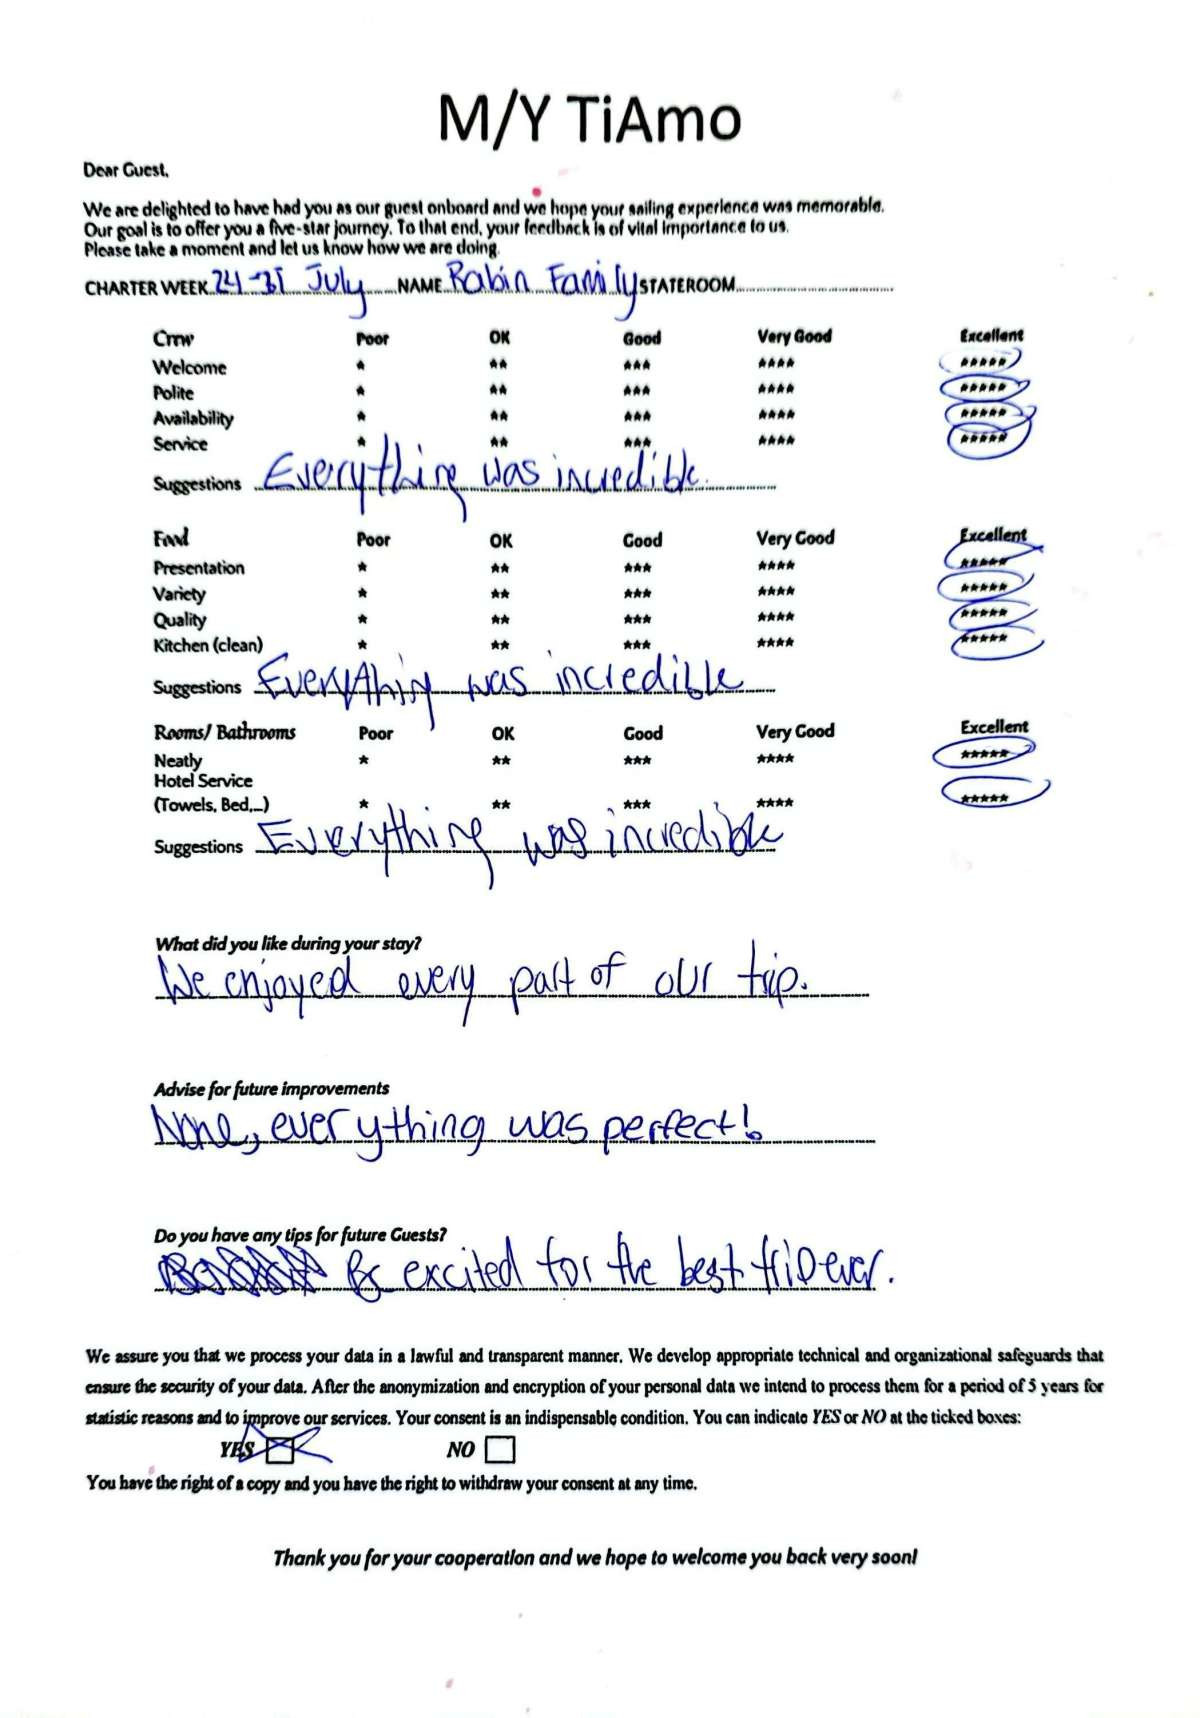 M/Y TiAmo
Dear Guest,
We are delighted to have had you as our guest onboard and we hope your sailing experience was memorable.
Our goal is to offer you a five-star journey. To that end, your feedback is of vital importance to us.
Please take a moment and let us know how we are doing.
CHARTER WEEK 24-31 July NAME Rabin Family STATEROOM
Crew Poor OK Good Very Good Excellent
Welcome * ** *** **** *****
Polite * ** *** **** *****
Availability * ** *** **** *****
Service * ** *** **** *****
Suggestions Everything was incredible.
Food Poor OK Good Very Good Excellent
Presentation * ** *** **** *****
Variety * ** *** **** *****
Quality * ** *** **** *****
Kitchen (clean) * ** *** **** *****
Suggestions Everything was incredible
Rooms/ Bathrooms Poor OK Good Very Good Excellent
Neatly * ** *** **** *****
Hotel Service
(Towels, Bed,...) * ** *** **** *****
Suggestions Everything was incredible
What did you like during your stay?
We enjoyed every part of our trip.
Advise for future improvements
None, everything was perfect!
Do you have any tips for future Guests?
Be excited for the best trip ever.
We assure you that we process your data in a lawful and transparent manner. We develop appropriate technical and organizational safeguards that
ensure the security of your data. After the anonymization and encryption of your personal data we intend to process them for a period of 5 years for
statistic reasons and to improve our services. Your consent is an indispensable condition. You can indicate YES or NO at the ticked boxes:
YES NO
You have the right of a copy and you have the right to withdraw your consent at any time.
Thank you for your cooperation and we hope to welcome you back very soon!